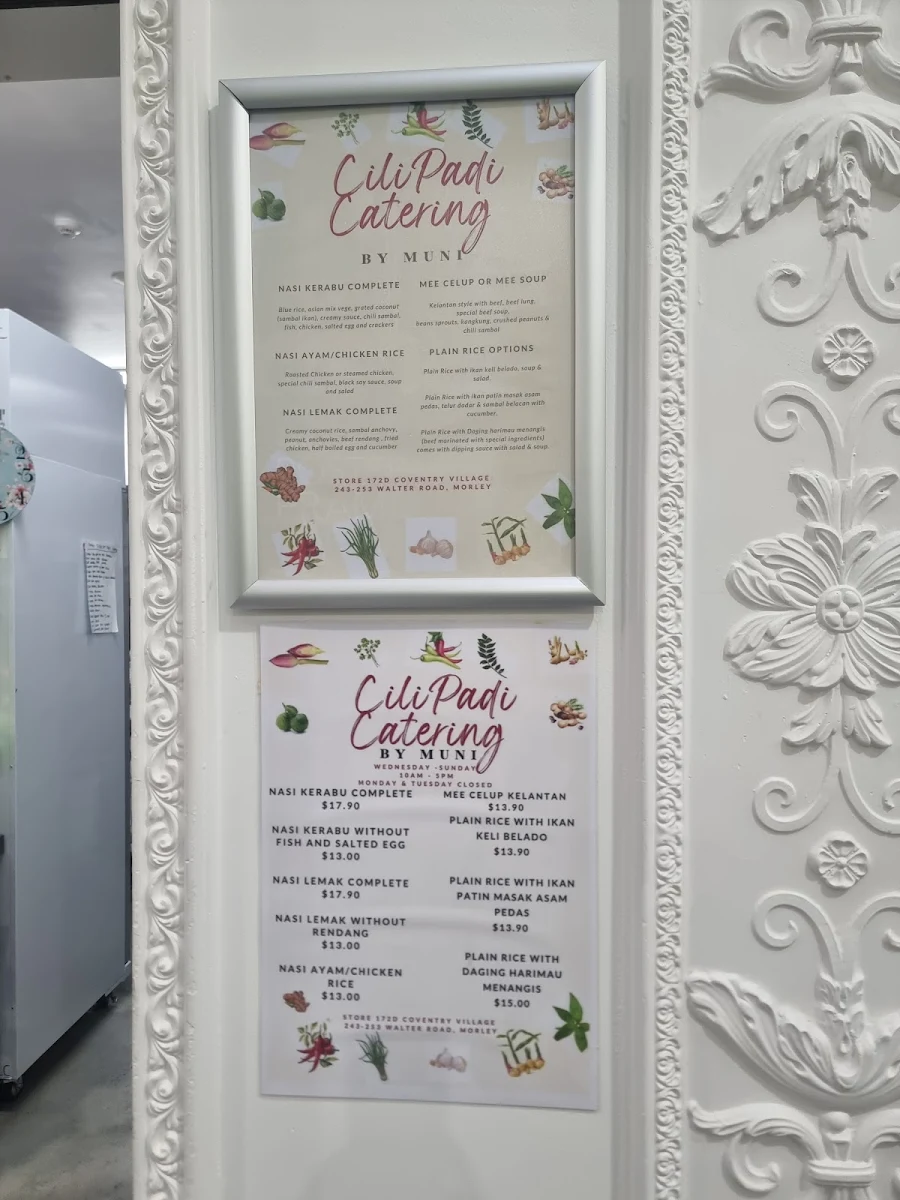 Cili Padi
Catering
BY MUNI
NASI KERABU COMPLETE
Blue rice, asian mix vege, grated coconut
(sambal ikan), creamy sauce, chili sambal,
fish, chicken, salted egg and crackers
NASI AYAM/CHICKEN RICE
Roasted Chicken or steamed chicken,
special chili sambal, black soy sauce, soup
and salad
NASI LEMAK COMPLETE
Creamy coconut rice, sambal anchovy,
peanut, anchovies, beef rendang, fried
chicken, half boiled egg and cucumber
MEE CELUP OR MEE SOUP
Kelantan style with beef, beef lung,
special beef soup,
beans sprouts, kangkung, crushed peanuts &
chili sambal
PLAIN RICE OPTIONS
Plain Rice with ikan keli belado, soup &
salad.
Plain Rice with ikan patin masak asam
pedas, telur dadar & sambal belacan with
cucumber.
Plain Rice with Daging harimau menangis
(beef marinated with special ingredients)
comes with dipping sauce with salad & soup.
STORE 172D COVENTRY VILLAGE
243-253 WALTER ROAD, MORLEY
Cili Padi
Catering
BY MUNI
WEDNESDAY -SUNDAY
10AM - 5PM
MONDAY & TUESDAY CLOSED
NASI KERABU COMPLETE
$17.90
NASI KERABU WITHOUT
FISH AND SALTED EGG
$13.00
NASI LEMAK COMPLETE
$17.90
NASI LEMAK WITHOUT
RENDANG
$13.00
NASI AYAM/CHICKEN
RICE
$13.00
MEE CELUP KELANTAN
$13.90
PLAIN RICE WITH IKAN
KELI BELADO
$13.90
PLAIN RICE WITH IKAN
PATIN MASAK ASAM
PEDAS
$13.90
PLAIN RICE WITH
DAGING HARIMAU
MENANGIS
$15.00
STORE 172D COVENTRY VILLAGE
243-253 WALTER ROAD, MORLEY